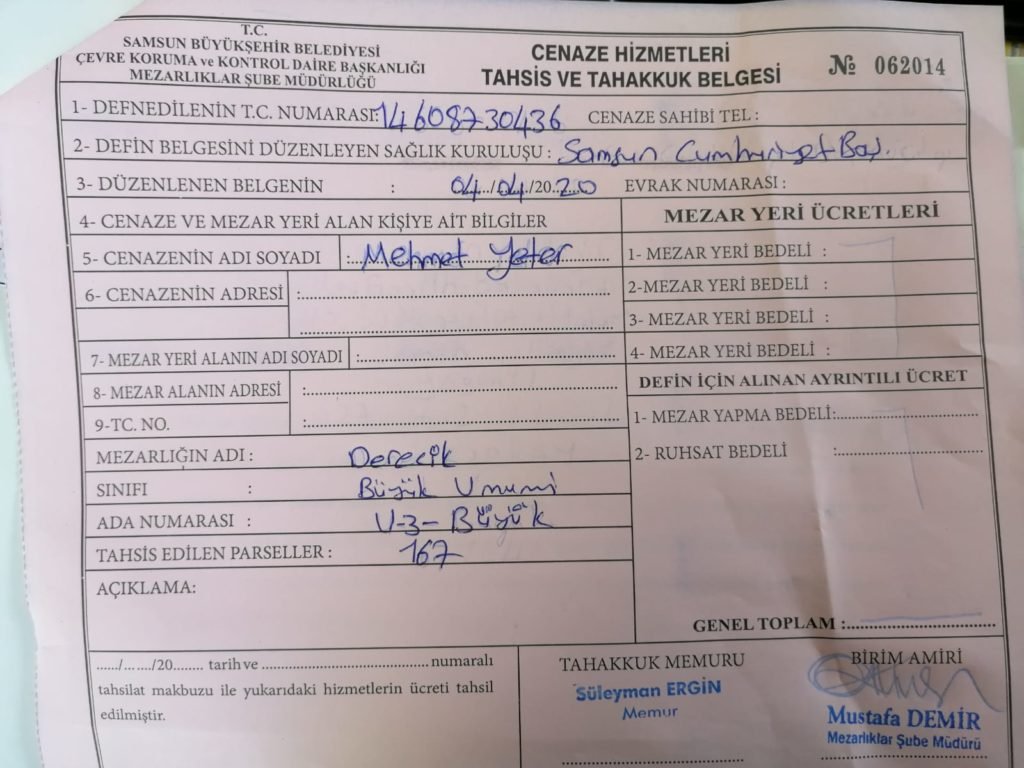 T.C.
SAMSUN BÜYÜKŞEHİR BELEDİYESİ
ÇEVRE KORUMA ve KONTROL DAİRE BAŞKANLIĞI
MEZARLIKLAR ŞUBE MÜDÜRLÜĞÜ
CENAZE HİZMETLERİ
TAHSİS VE TAHAKKUK BELGESİ
№ 062014
1- DEFNEDİLENİN T.C. NUMARASI: 14608730436 CENAZE SAHİBİ TEL :
2- DEFİN BELGESİNİ DÜZENLEYEN SAĞLIK KURULUŞU : Samsun Cumhuriyet Baş.
3- DÜZENLENEN BELGENİN : 04../04/20.20 EVRAK NUMARASI :
4- CENAZE VE MEZAR YERİ ALAN KİŞİYE AİT BİLGİLER
5- CENAZENİN ADI SOYADI : Mehmet Yeter
6- CENAZENİN ADRESİ :
7- MEZAR YERİ ALANIN ADI SOYADI :
8- MEZAR ALANIN ADRESİ :
9-TC. NO. :
MEZARLIĞIN ADI : Derecik
SINIFI : Büyük Umumi
ADA NUMARASI : U-3-Büyük
TAHSİS EDİLEN PARSELLER : 167
AÇIKLAMA:
MEZAR YERİ ÜCRETLERİ
1- MEZAR YERİ BEDELİ :
2-MEZAR YERİ BEDELİ :
3- MEZAR YERİ BEDELİ :
4- MEZAR YERİ BEDELİ :
DEFİN İÇİN ALINAN AYRINTILI ÜCRET
1- MEZAR YAPMA BEDELİ:
2- RUHSAT BEDELİ :
GENEL TOPLAM :
....../... .../20........ tarih ve ........................................ numaralı
tahsilat makbuzu ile yukarıdaki hizmetlerin ücreti tahsil
edilmiştir.
TAHAKKUK MEMURU
Süleyman ERGİN
Memur
BİRİM AMİRİ
Mustafa DEMİR
Mezarlıklar Şube Müdürü